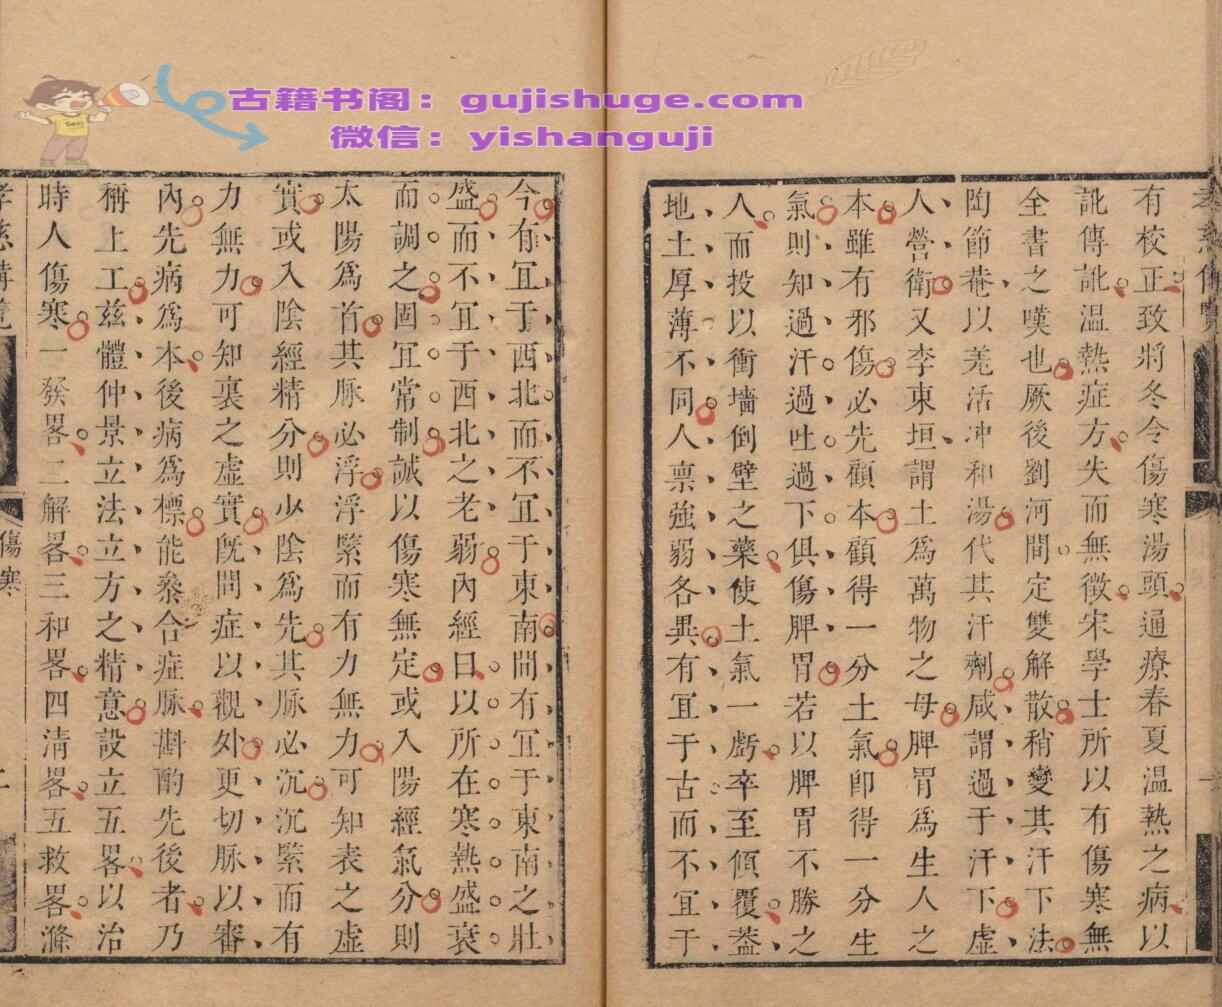 古籍书阁：gujishuge.com
微信：yishanguji
有校正致將冬令傷寒湯頭通療春夏溫熱之病以
訛傳訛溫熱症方失而無徴宋學士所以有傷寒無
全書之嘆也厥後劉河間定雙解散稍變其汗下法
陶節菴以羗活冲和湯代其汗劑咸謂過于汗下虛
人營衛又李東垣謂土爲萬物之母脾胃爲生人之
本雖有邪傷必先顧本顧得一分土氣卽得一分生
氣則知過汗過吐過下俱傷脾胃若以脾胃不勝之
人而投以衝墻倒壁之藥使土氣一虧卒至傾覆葢
地土厚薄不同人禀強弱各異有宜于古而不宜于
今有宜于西北而不宜于東南間有宜于東南之壯
盛而不宜于西北之老弱內經曰以所在寒熱盛衰
而調之固宜常制誠以傷寒無定或入陽經氣分則
太陽爲首其脉必浮浮緊而有力無力可知表之虛
實或入陰經精分則少陰爲先其脉必沉沉緊而有
力無力可知裏之虛實旣問症以觀外更切脉以審
內先病爲本後病爲標能叅合症脉斟酌先後者乃
稱上工兹體仲景立法立方之精意設立五畧以治
時人傷寒一發畧二解畧三和畧四淸畧五救畧滌
傷寒